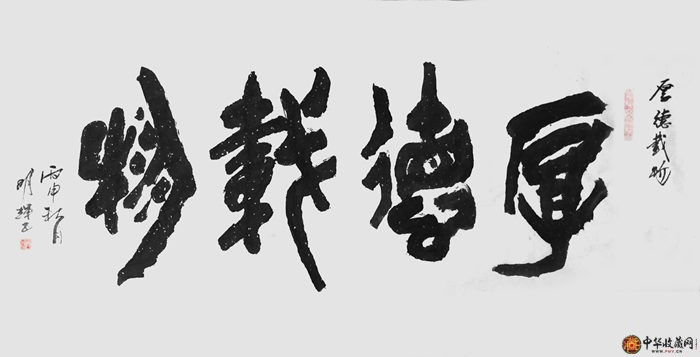 厚德載物
厚德載物
丙申秋月
明輝
中华收藏网